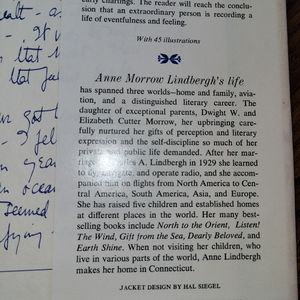 early chartings. The reader will reach the conclu-
sion that an extraordinary person is recording a
life of eventfulness and feeling.
With 45 illustrations
Anne Morrow Lindbergh's life
has spanned three worlds—home and family, avia-
tion, and a distinguished literary career. The
daughter of exceptional parents, Dwight W. and
Elizabeth Cutter Morrow, her upbringing care-
fully nurtured her gifts of perception and literary
expression and the self-discipline so much of her
private and public life demanded. After her mar-
A. Lindbergh in 1929 she learned to
navigate, and operate radio, and she accom-
panied him on flights from North America to Cen-
tral America, South America, Asia, and Europe.
She has raised five children and established homes
at different places in the world. Her many best-
selling books include North to the Orient, Listen!
The Wind, Gift from the Sea, Dearly Beloved, and
Earth Shine. When not visiting her children, who
live in various parts of the world, Anne Lindbergh
makes her home in Connecticut.
JACKET DESIGN BY HAL SIEGEL